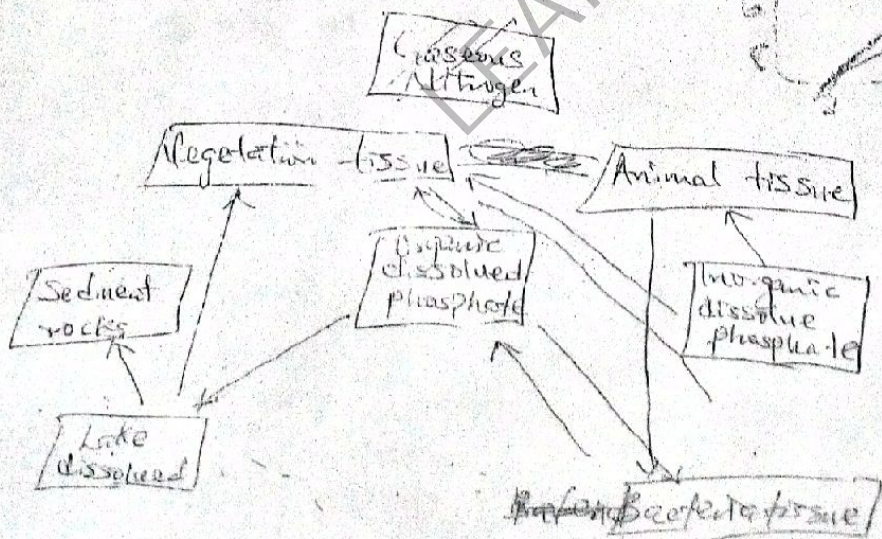 Gaseous
Nitrogen
Vegetation tissue
Animal tissue
Organic
dissolved
phosphate
Inorganic
dissolve
phosphate
Sediment
rocks
Lake
dissolved
Bacteria tissue